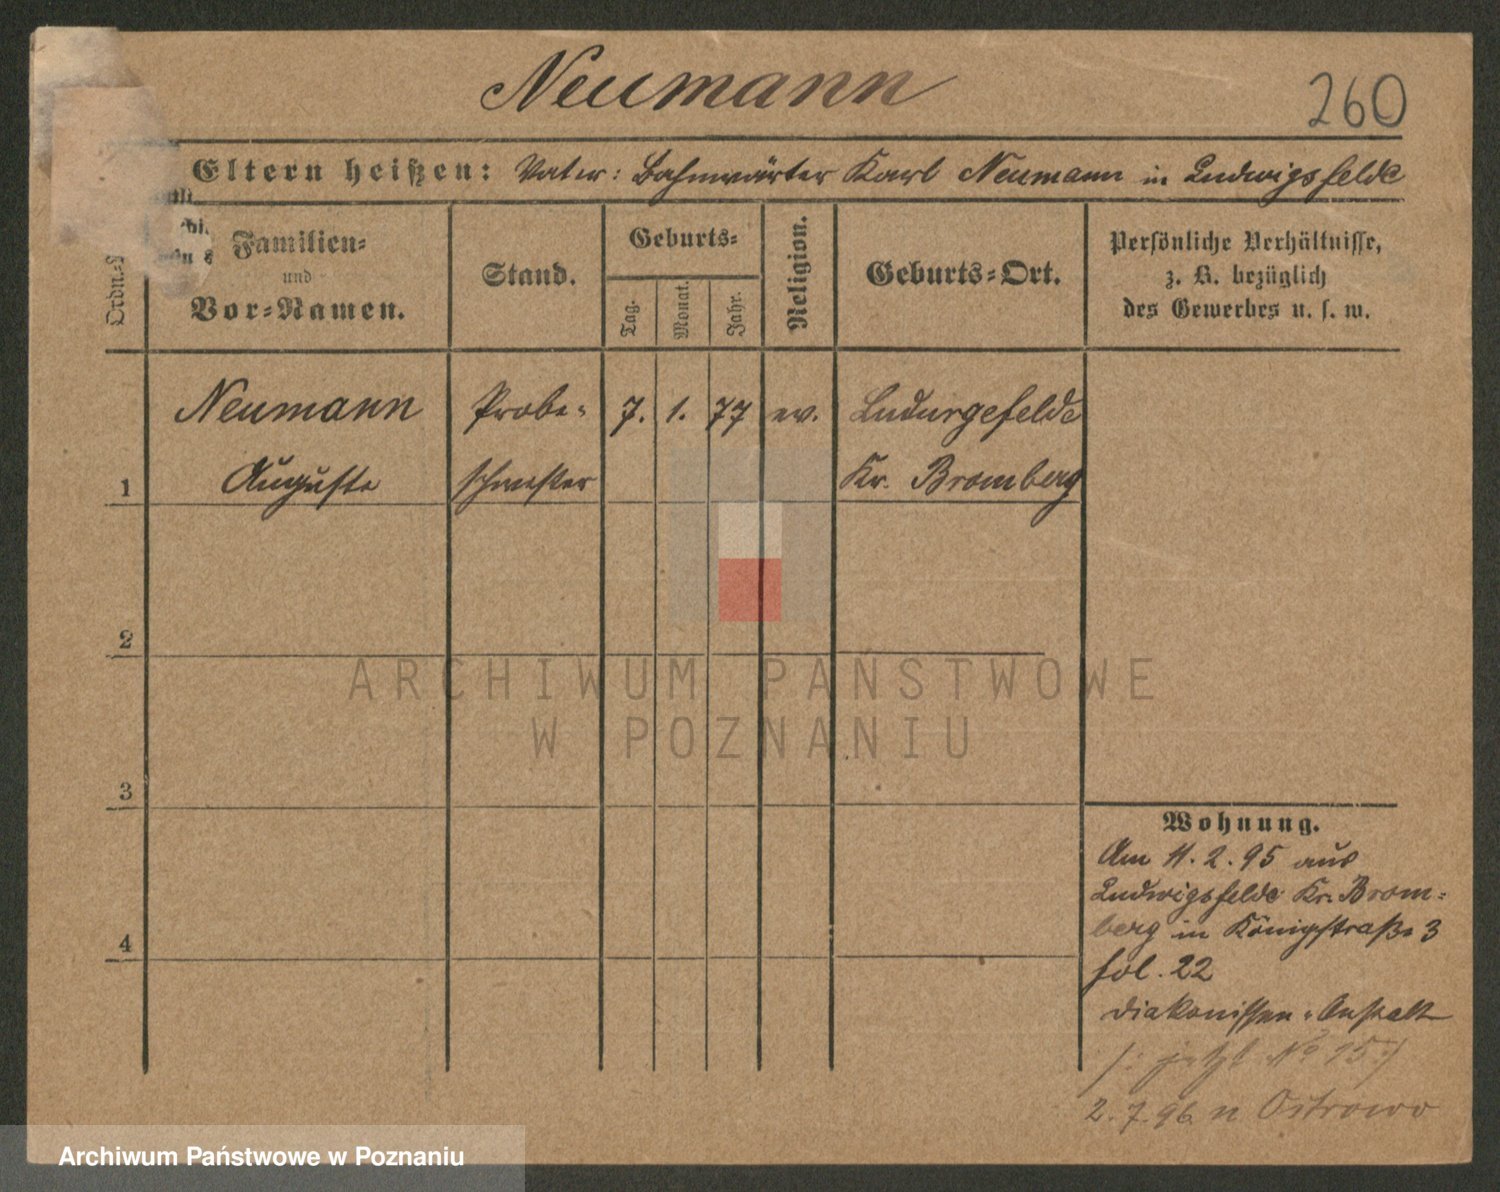 Neumann
260
Eltern heißen: Vater: Bahnwärter Karl Neumann in Ludwigsfelde
Ordn.-
Familien-
und
Vor-Namen.
Stand.
Geburts-
Tag.
Monat.
Jahr.
Religion.
Geburts-Ort.
Persönliche Verhältnisse,
z. B. bezüglich
des Gewerbes u. s. w.
Neumann Probe- 7. 1. 77 ev. Ludwigsfelde
1 Auguste schwester Kr. Bromberg
2
3
4
Wohnung.
Am 11.2.95 aus
Ludwigsfelde Kr. Brom-
berg in Königstraße 3
fol. 22
Diakonissen-Anstalt
/: jetzt No 15 :/
2.7.96 n Ostrowo
ARCHIWUM PAŃSTWOWE
W POZNANIU
Archiwum Państwowe w Poznaniu